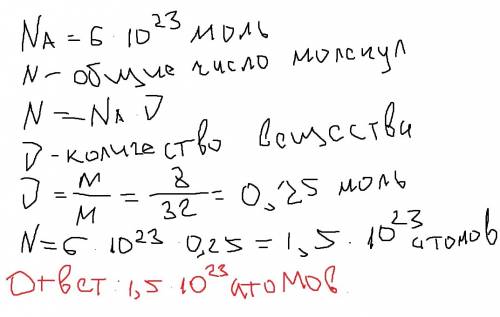 NA = 6 · 10^23 моль
N – общие число молекул
N = NA ν
ν – количество вещества
ν = m/M = 8/32 = 0,25 моль
N = 6 · 10^23 · 0,25 = 1,5 · 10^23 атомов
Ответ: 1,5 · 10^23 атомов